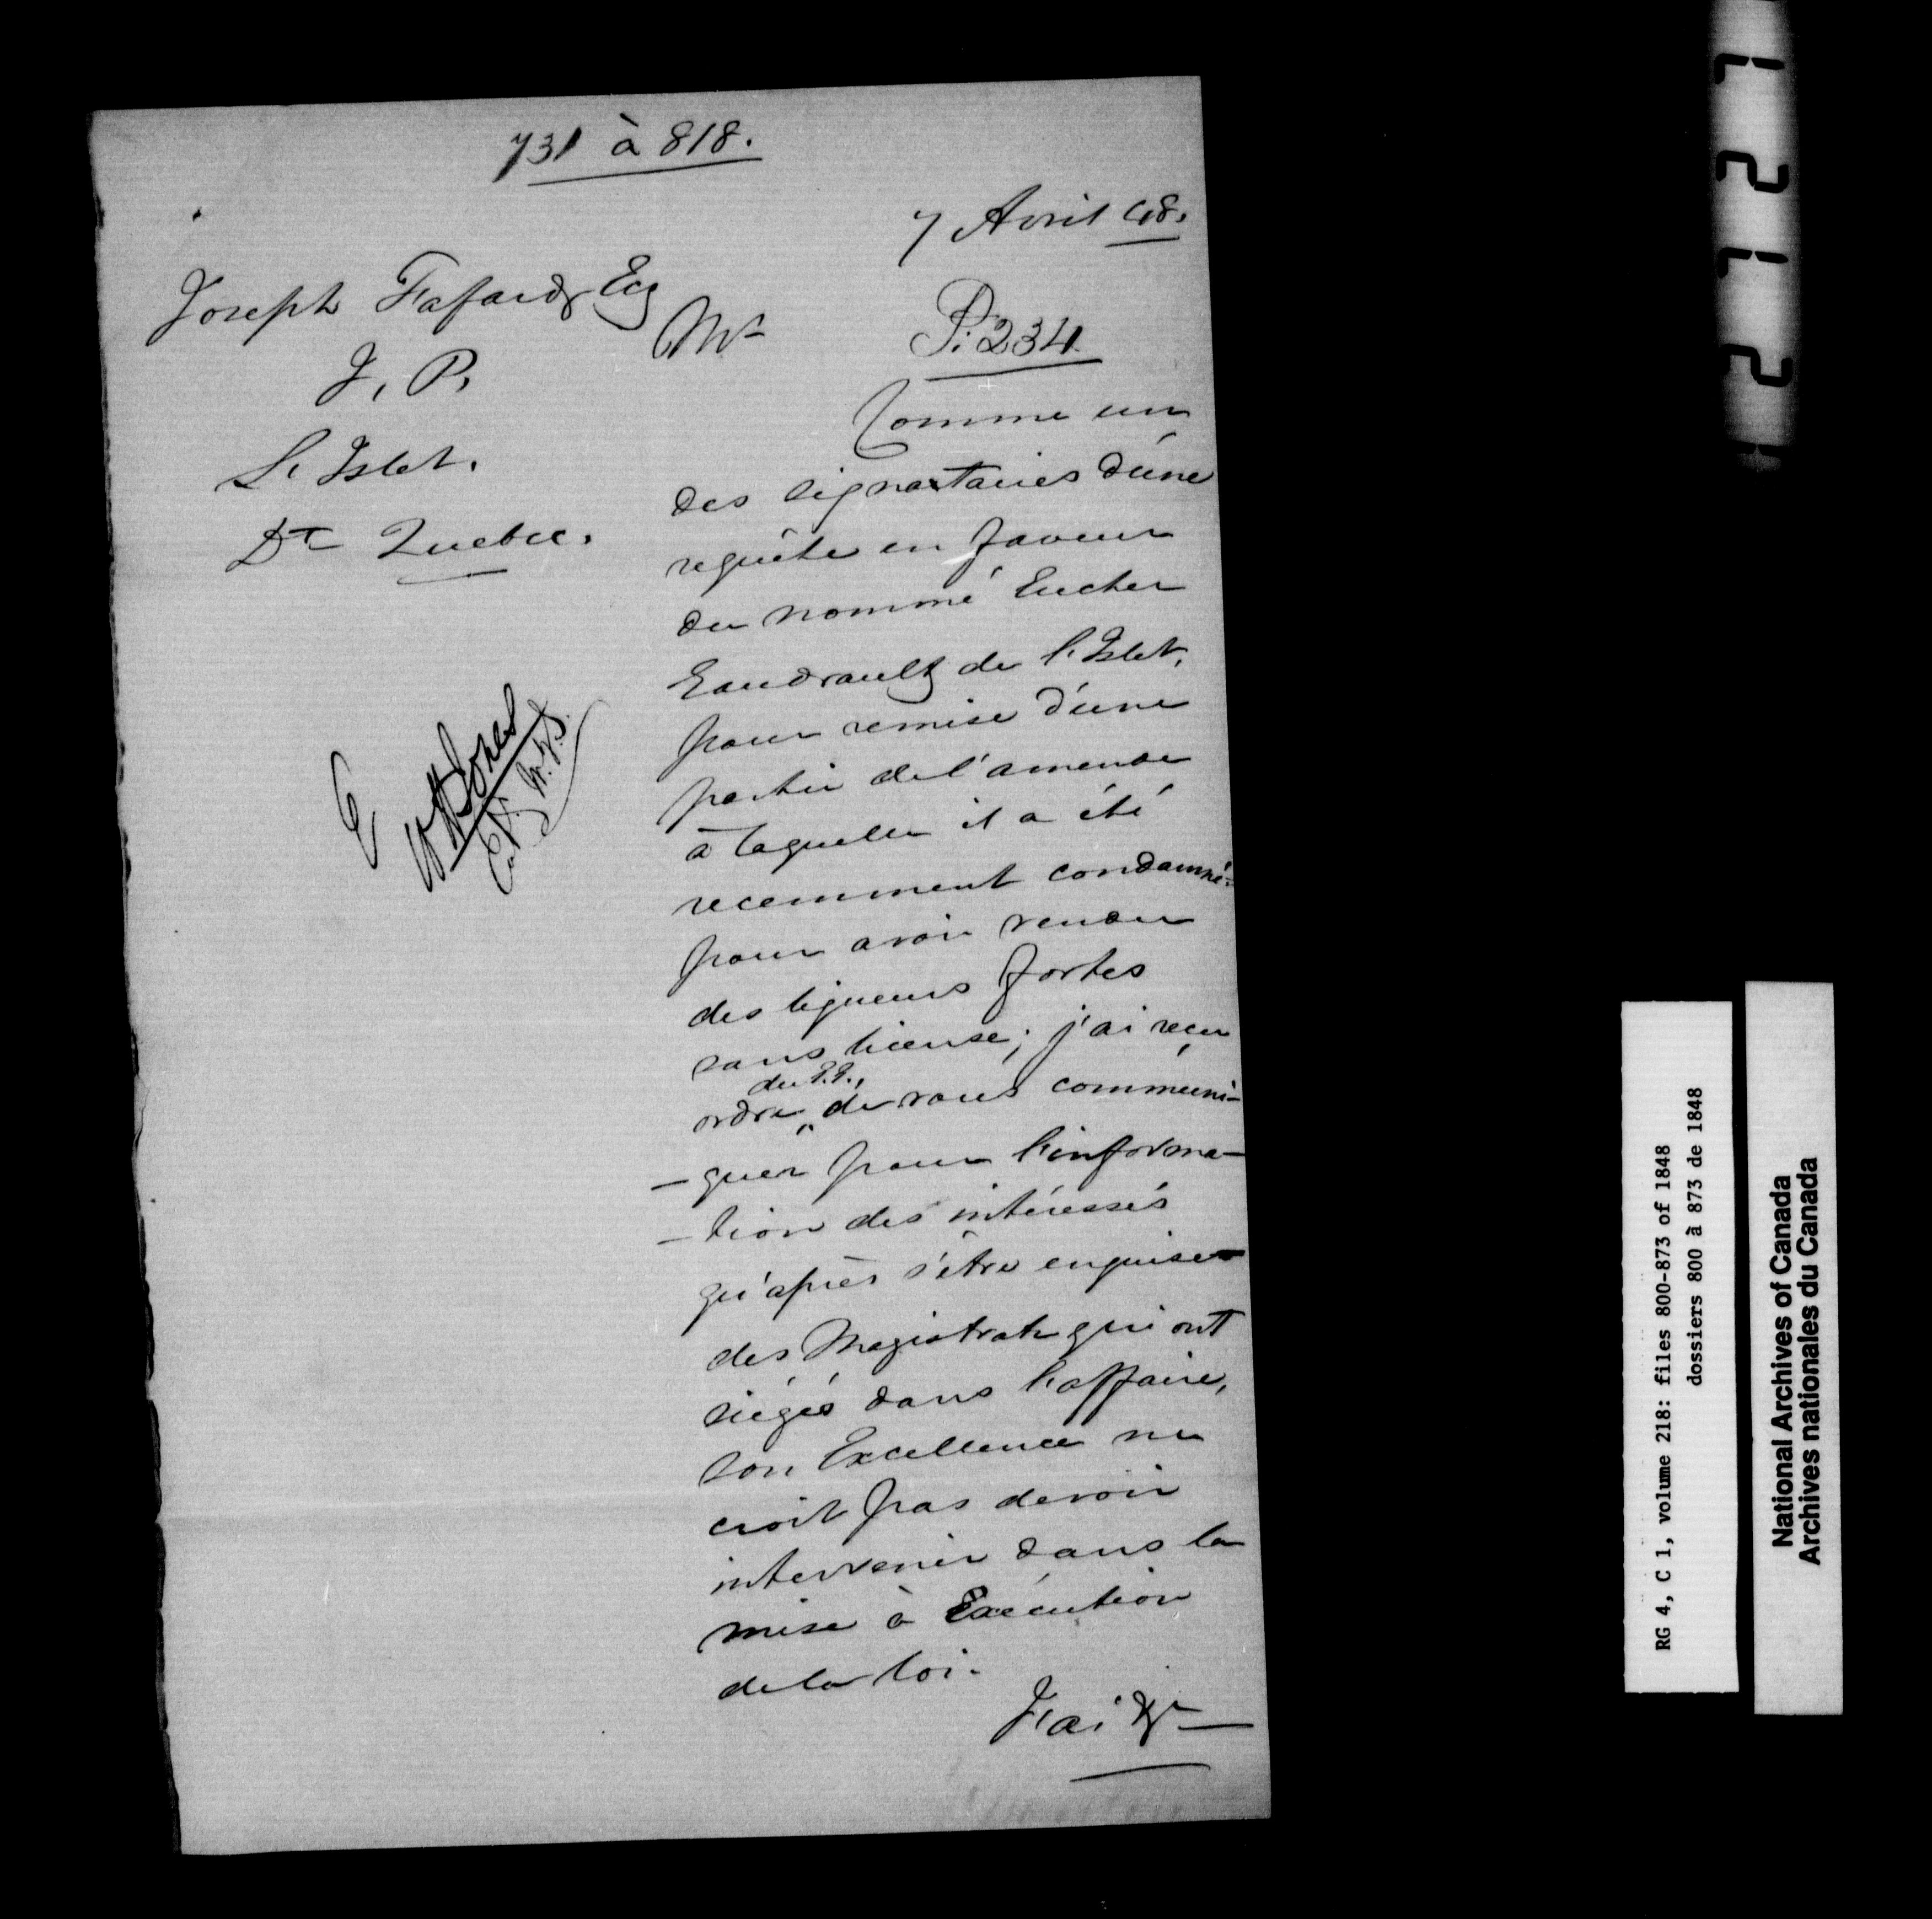 731 à 818.
7 Avril 48.
Joseph Fafard Ecr
J. P.
L'Islet.
Dt Quebec.
Mr
P. 234
Comme un
des signataires d'une
requête en faveur
du nommé Eucher
Gaudrault de l'Islet,
pour remise d'une
partie de l'amende
à laquelle il a été
recemment condamné
pour avoir vendu
des liqueurs fortes
sans license; j'ai reçu
du G.G.,
ordre de vous communi-
-quer pour l'informa-
-tion des intéressés
qu'après s'être enquise
des Magistrats qui ont
siégés dans l'affaire,
Son Excellence ne
croit pas devoir
intervenir dans la
mise à Exécution
de la loi.
J'ai &c
E
W H Jones
RG 4, C 1, volume 218: files 800-873 of 1848
dossiers 800 à 873 de 1848
National Archives of Canada
Archives nationales du Canada